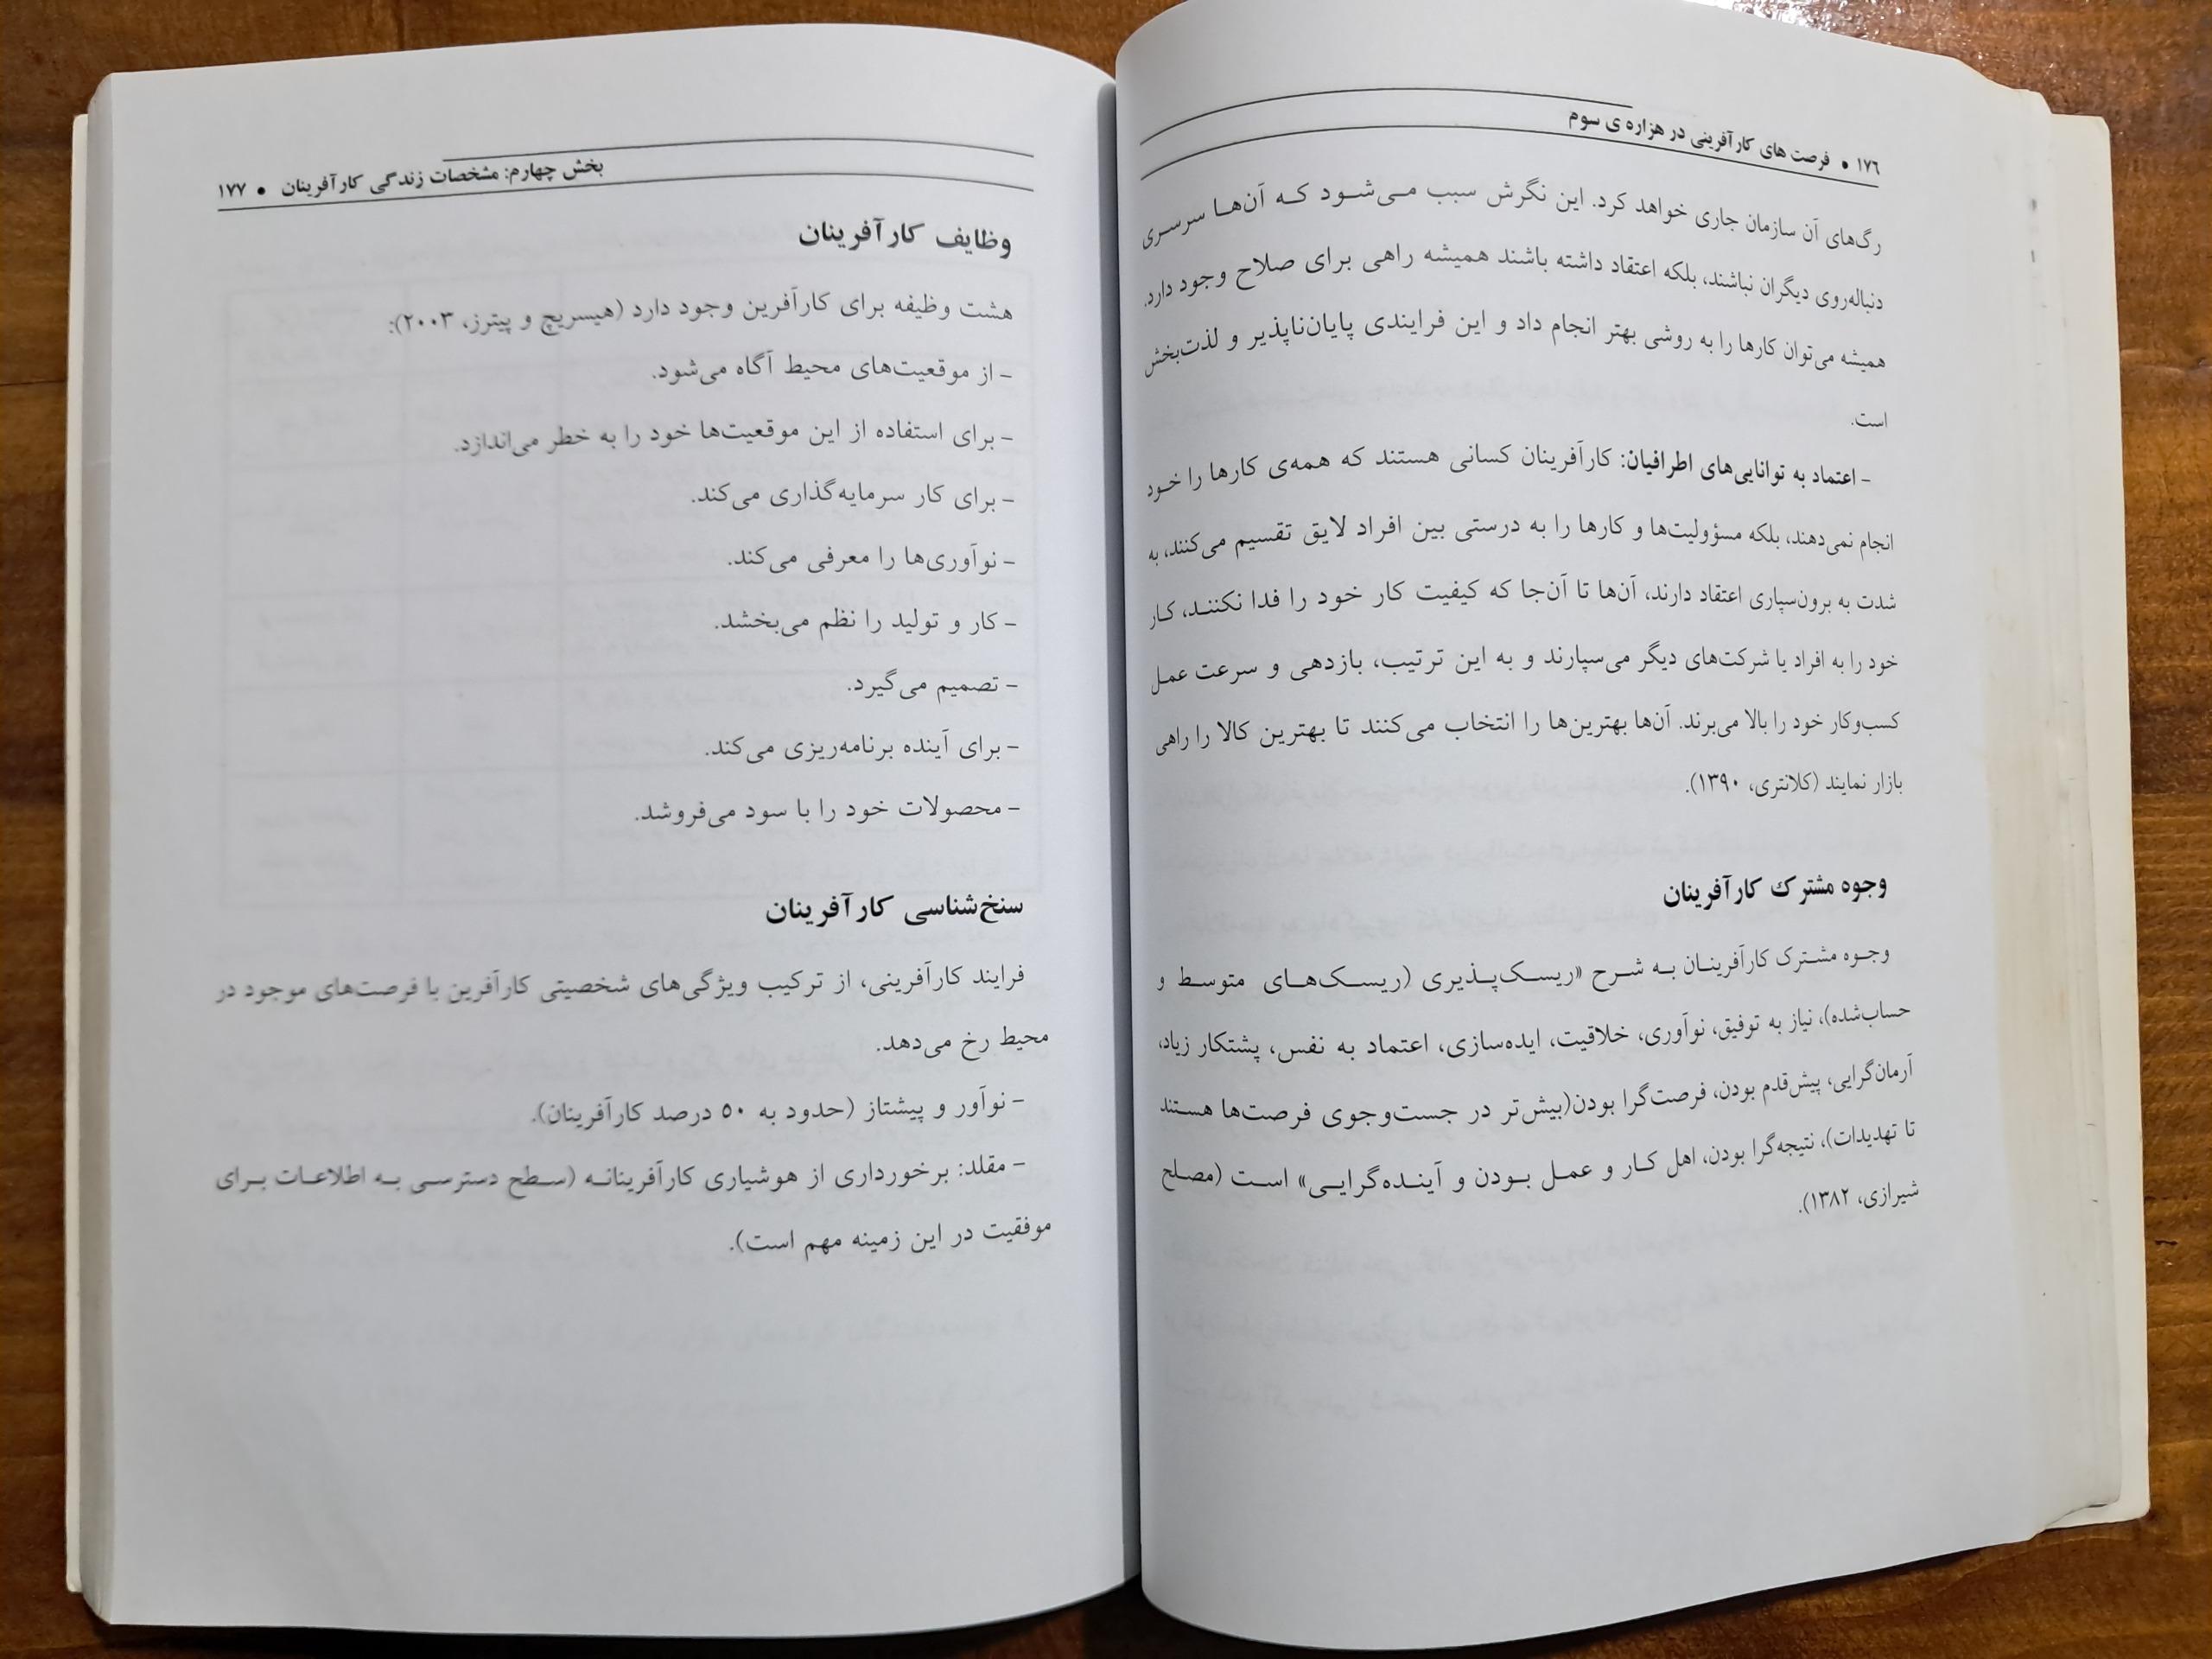 ۱۷۶ • فرصت های کارآفرینی در هزاره ی سوم
رگ‌های آن سازمان جاری خواهد کرد. این نگرش سبب می‌شود که آن‌ها سرسری
دنباله‌روی دیگران نباشند، بلکه اعتقاد داشته باشند همیشه راهی برای صلاح وجود دارد.
همیشه می‌توان کارها را به روشی بهتر انجام داد و این فرایندی پایان‌ناپذیر و لذت‌بخش
است.
- اعتماد به توانایی‌های اطرافیان: کارآفرینان کسانی هستند که همه‌ی کارها را خود
انجام نمی‌دهند، بلکه مسؤولیت‌ها و کارها را به درستی بین افراد لایق تقسیم می‌کنند، به
شدت به برون‌سپاری اعتقاد دارند، آن‌ها تا آن‌جا که کیفیت کار خود را فدا نکنند، کار
خود را به افراد یا شرکت‌های دیگر می‌سپارند و به این ترتیب، بازدهی و سرعت عمل
کسب‌وکار خود را بالا می‌برند. آن‌ها بهترین‌ها را انتخاب می‌کنند تا بهترین کالا را راهی
بازار نمایند (کلانتری، ۱۳۹۰).
وجوه مشترک کارآفرینان
وجوه مشترک کارآفرینان به شرح «ریسک‌پذیری (ریسک‌های متوسط و
حساب‌شده)، نیاز به توفیق، نوآوری، خلاقیت، ایده‌سازی، اعتماد به نفس، پشتکار زیاد،
آرمان‌گرایی، پیش‌قدم بودن، فرصت‌گرا بودن(بیش‌تر در جست‌وجوی فرصت‌ها هستند
تا تهدیدات)، نتیجه‌گرا بودن، اهل کار و عمل بودن و آینده‌گرایی» است (مصلح
شیرازی، ۱۳۸۲).
بخش چهارم: مشخصات زندگی کارآفرینان • ۱۷۷
وظایف کارآفرینان
هشت وظیفه برای کارآفرین وجود دارد (هیسریچ و پیترز، ۲۰۰۳):
- از موقعیت‌های محیط آگاه می‌شود.
- برای استفاده از این موقعیت‌ها خود را به خطر می‌اندازد.
- برای کار سرمایه‌گذاری می‌کند.
- نوآوری‌ها را معرفی می‌کند.
- کار و تولید را نظم می‌بخشد.
- تصمیم می‌گیرد.
- برای آینده برنامه‌ریزی می‌کند.
- محصولات خود را با سود می‌فروشد.
سنخ‌شناسی کارآفرینان
فرایند کارآفرینی، از ترکیب ویژگی‌های شخصیتی کارآفرین با فرصت‌های موجود در
محیط رخ می‌دهد.
- نوآور و پیشتاز (حدود به ۵۰ درصد کارآفرینان).
- مقلد: برخورداری از هوشیاری کارآفرینانه (سطح دسترسی به اطلاعات برای
موفقیت در این زمینه مهم است).